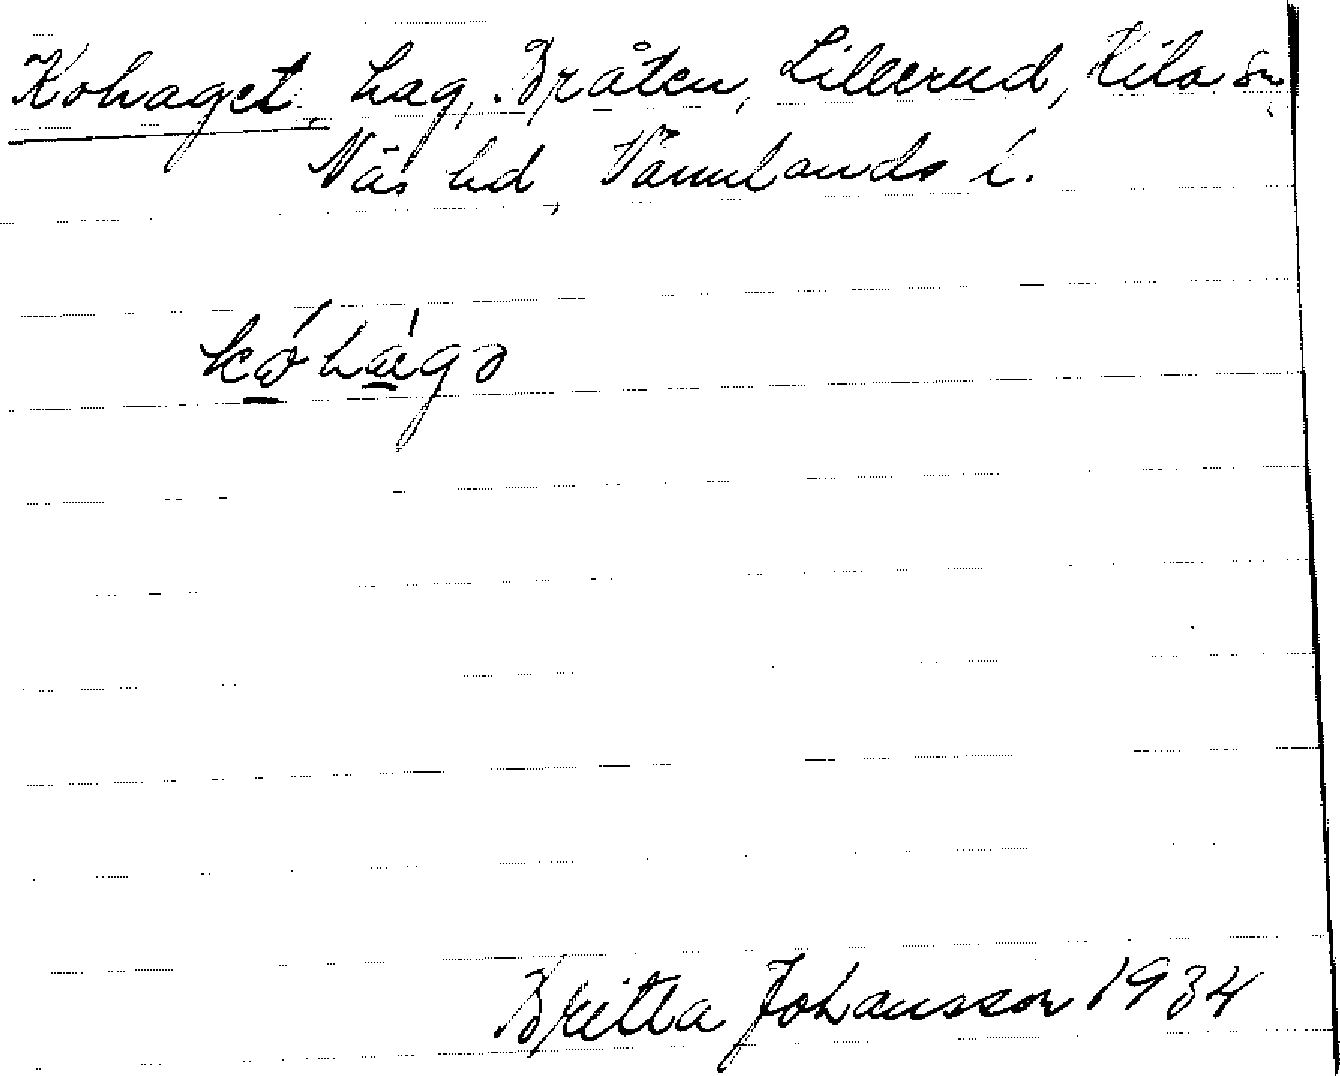 Kohaget, hag, Bråten, Lillerud, Kila sn,
Näs hd, Värmlands l.
Britta Johansson 1934